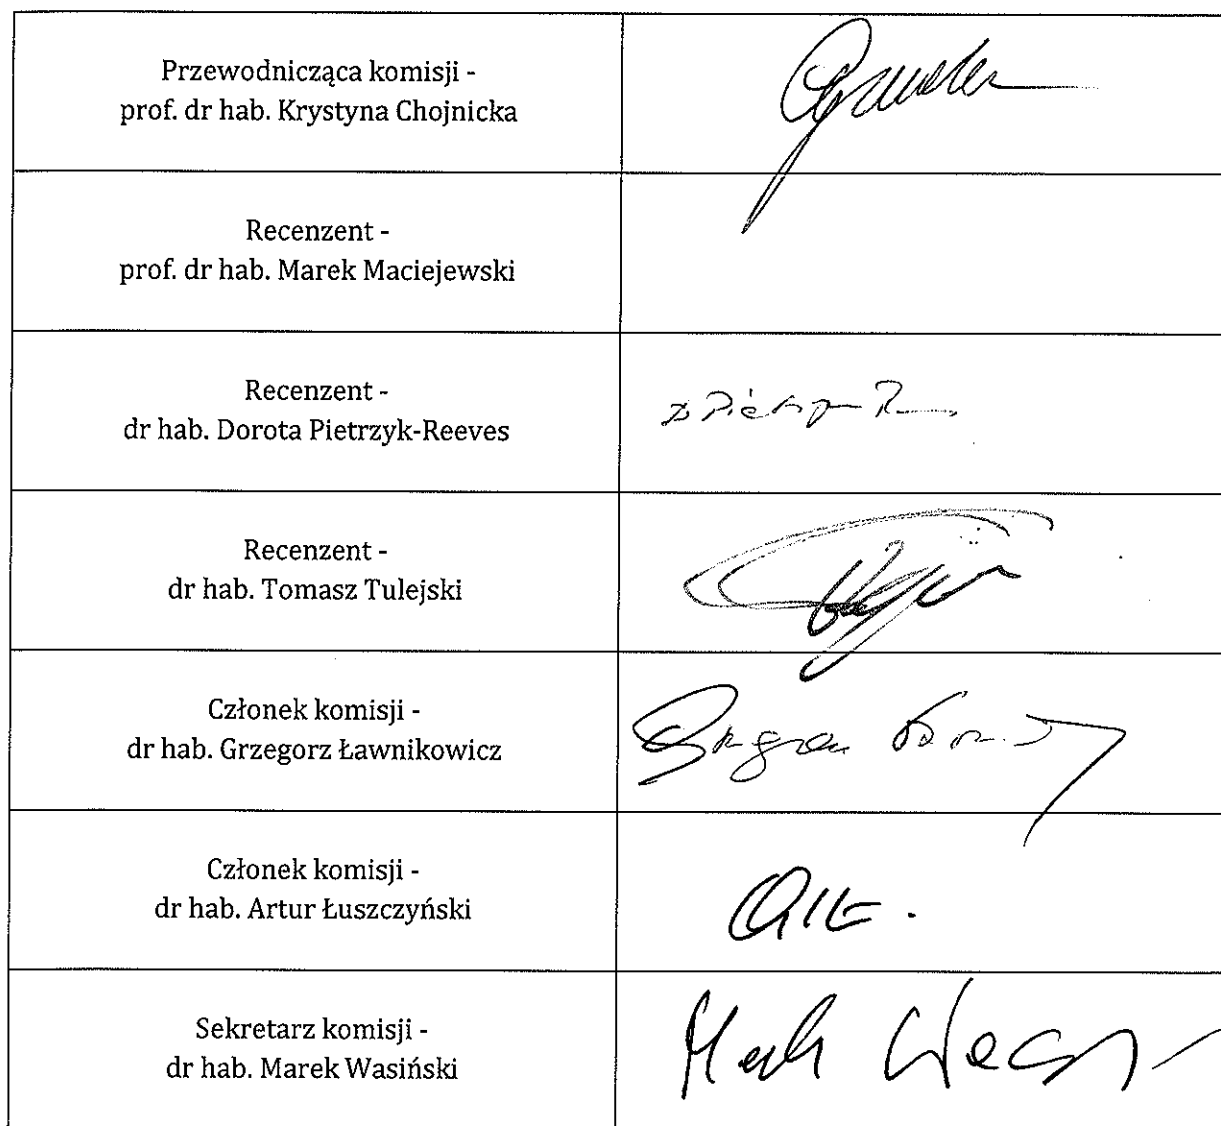 Przewodnicząca komisji -
prof. dr hab. Krystyna Chojnicka
Recenzent -
prof. dr hab. Marek Maciejewski
Recenzent -
dr hab. Dorota Pietrzyk-Reeves
Recenzent -
dr hab. Tomasz Tulejski
Członek komisji -
dr hab. Grzegorz Ławnikowicz
Członek komisji -
dr hab. Artur Łuszczyński
Sekretarz komisji -
dr hab. Marek Wasiński